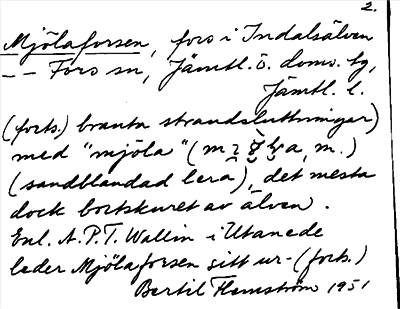 2.
Mjölaforsen, fors i Indalsälven
— — Fors sn, Jämtl. ö. doms. tg,
Jämtl. l.
(forts.) branta strandsluttningar)
med "mjöla" (m a, m.)
(sandblandad lera), det mesta
dock bortskuret av älven.
Enl. A.P.T. Wallin i Utanede
leder Mjölaforsen sitt ur- (forts.)
Bertil Flemström 1951